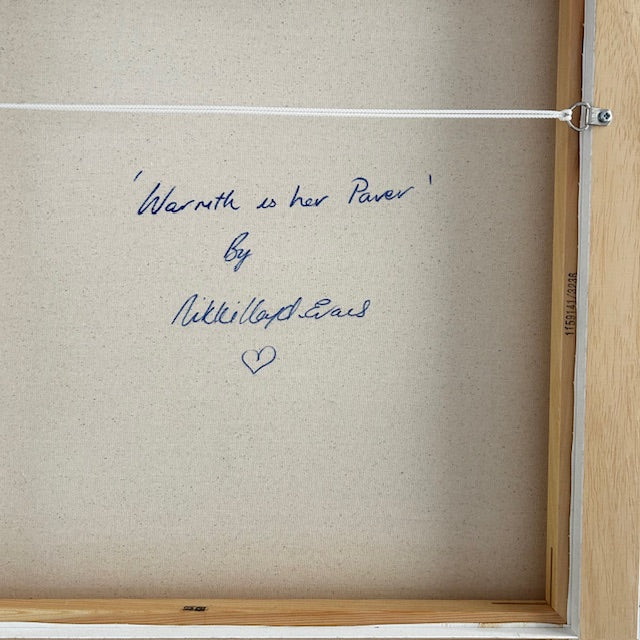 'Warmth is her Power'
By
Nikki Lloyd-Evans
1159141/3236